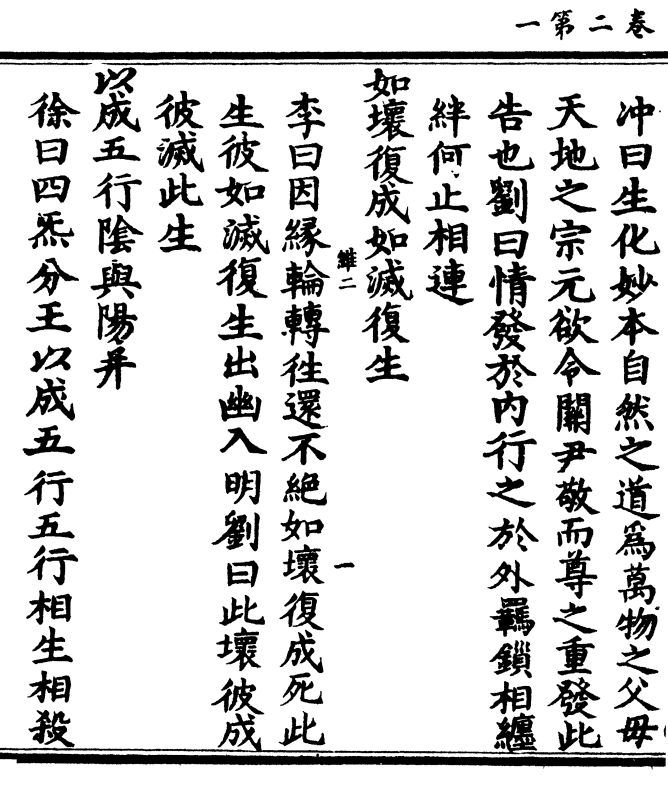 卷二第一
冲曰生化妙本自然之道爲萬物之父母
天地之宗元欲令關尹敬而尊之重發此
告也劉曰情發於内行之於外羈鎖相纏
絆何止相連
如壞復成如滅復生
維二
一
李曰因緣輪轉往還不絶如壞復成死此
生彼如滅復生出幽入明劉曰此壞彼成
彼滅此生
以成五行陰與陽并
徐曰四炁分王以成五行五行相生相殺